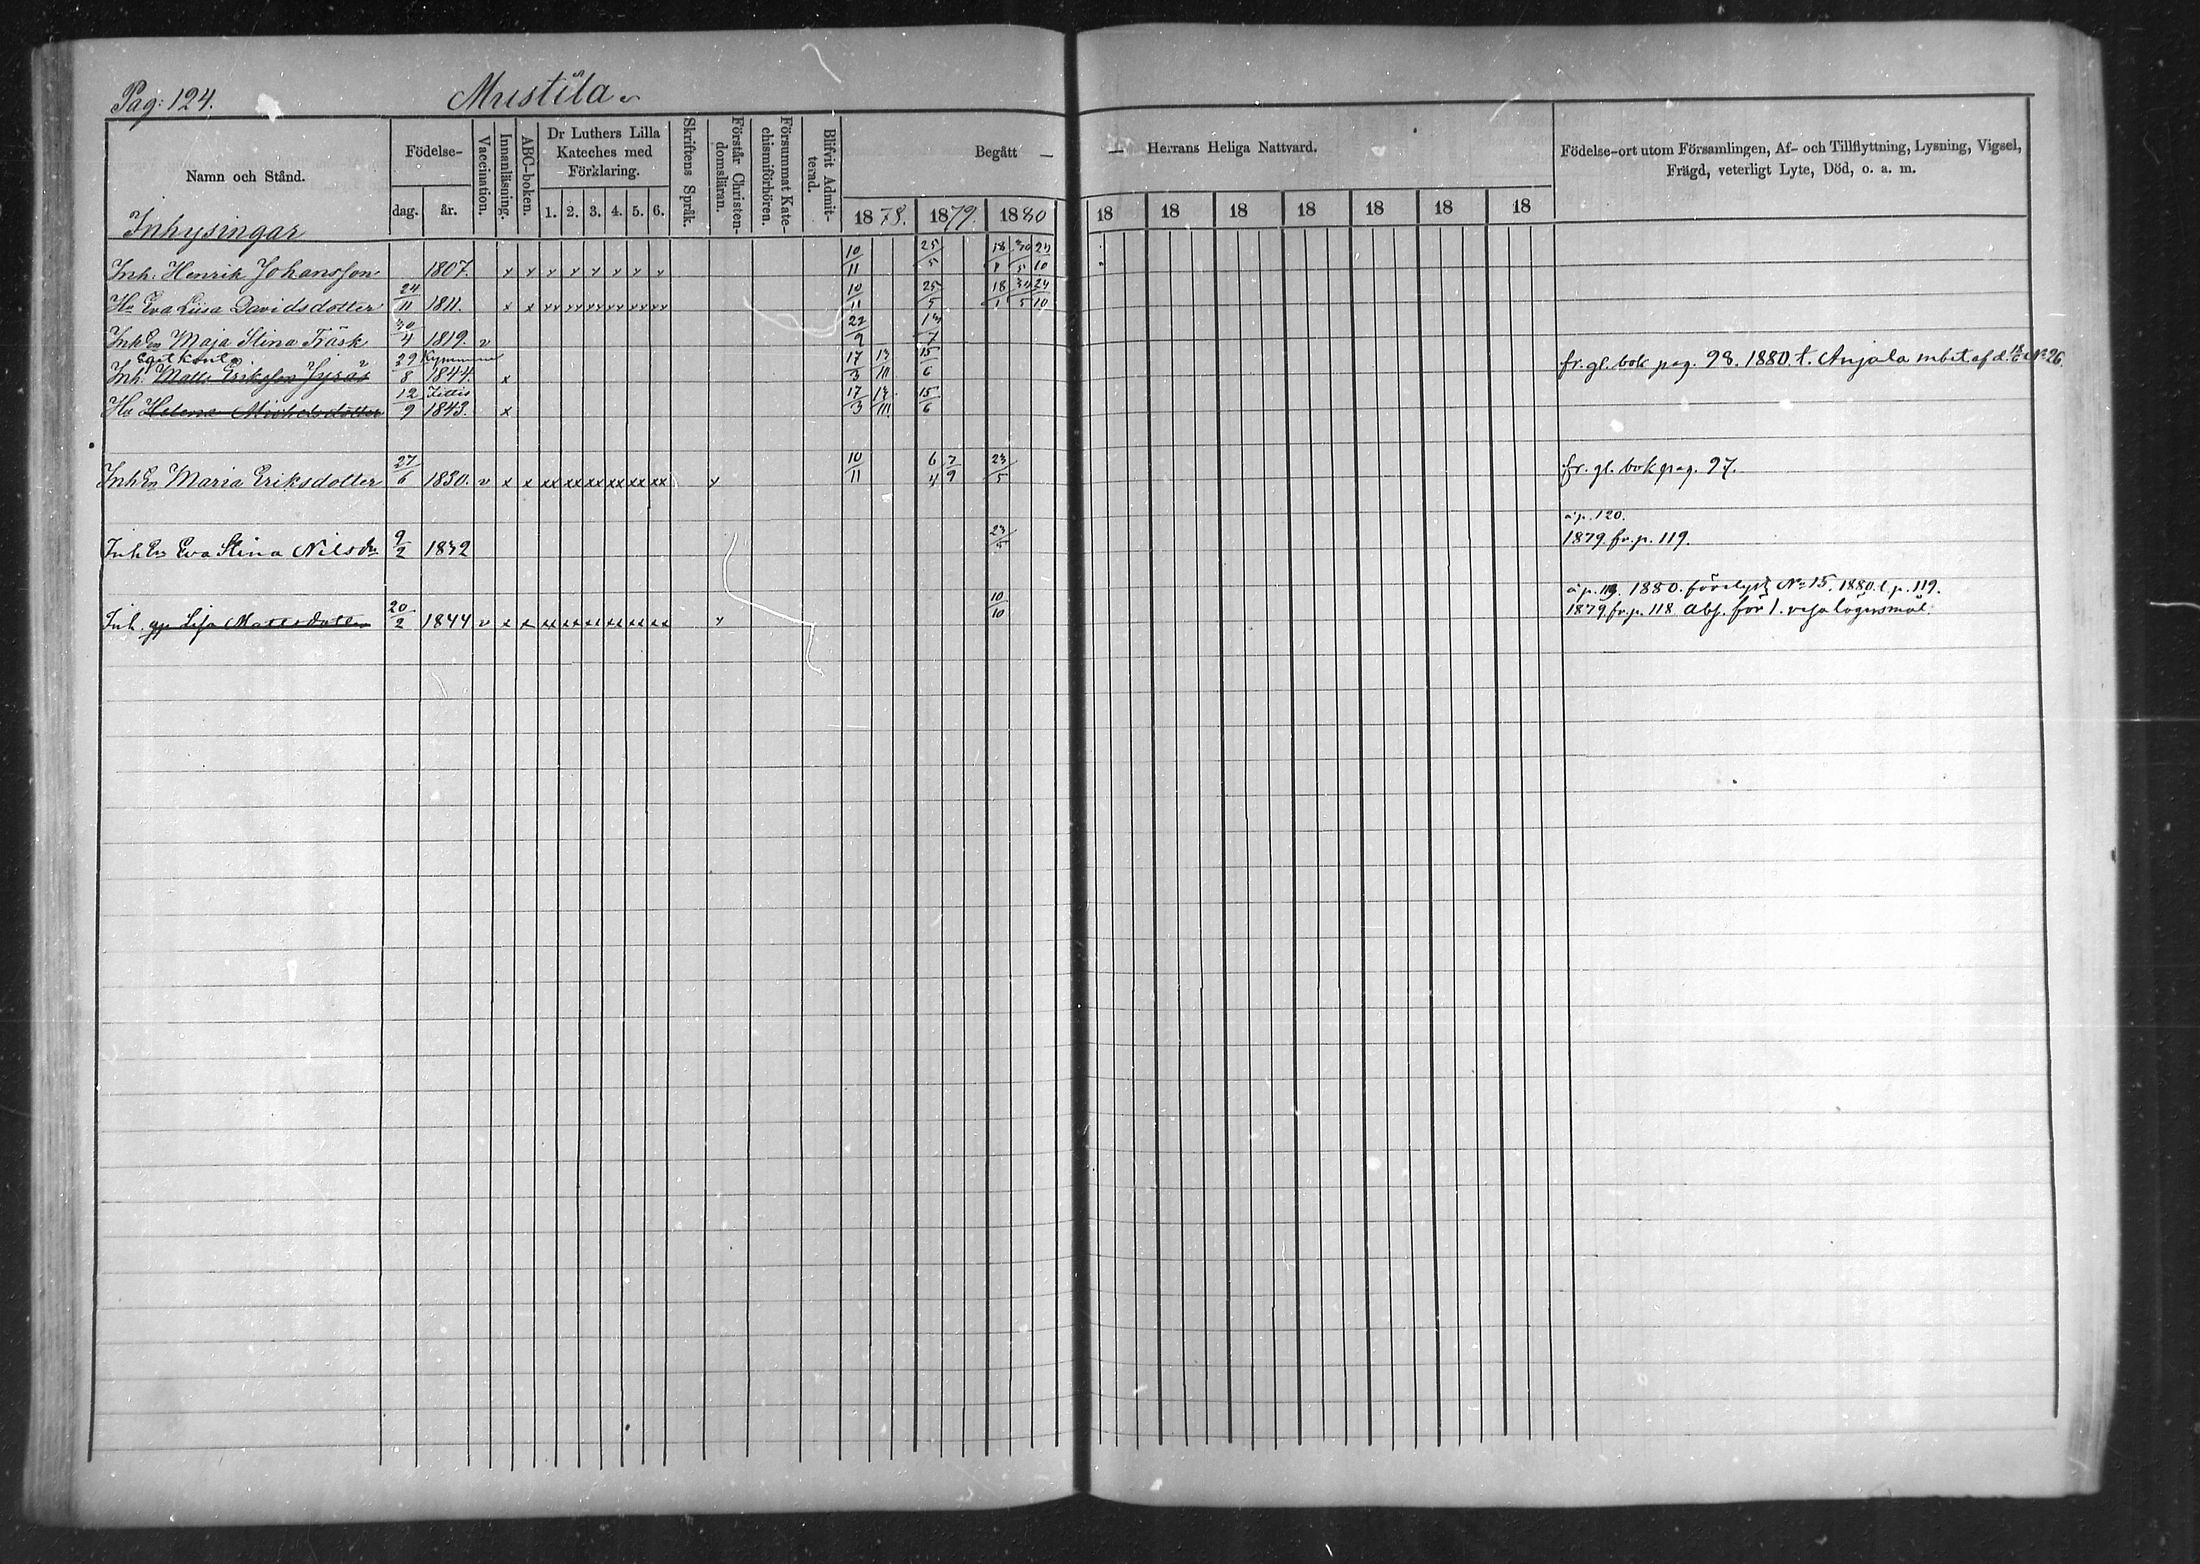 Pag: 124. Mustila
Namn och Stånd. Födelse- dag. år. Vaccination. Innanläsning. ABC-boken. Dr Luthers Lilla Kateches med Förklaring. 1. 2. 3. 4. 5. 6. Skriftens Språk. Förstår Christendomsläran. Försummat Katechismiförhören. Blifvit Admitterad. Begått — — Herrans Heliga Nattvard. Födelse-ort utom Församlingen, Af- och Tillflyttning, Lysning, Vigsel, Frägd, veterligt Lyte, Död, o. a. m.
1878. 1879. 1880 18 18 18 18 18 18 18
Inhysingar
Inh. Henrik Johansson 1807. x x x x x x x x 10/11 25/5 18/8 30/5 24/10
Hu Eva Liisa Davidsdotter 24/11 1811. x x xx xx xx xx xx xx 10/11 25/5 18/1 30/5 24/10
Inh En Maja Stina Träsk 30/4 1819. v 22/9 13/7
Inh. Matts Eriksson 29/8 Kymmene 1844. x 17/3 15/6 fr. gl. bok pag. 98. 1880. t. Anjala m bet af d. No 26.
Hu Helena Michelsdotter 12/9 1843. x 17/3 15/6
Inh En Maria Eriksdotter 27/6 1830. v x x xx xx xx xx xx xx x 10/11 6/4 7/9 23/5 fr. gl. bok pag. 97.
å p. 120.
Inh En Eva Stina Nilsdr 9/2 1832 23/5 1879 fr. p. 119.
å p. 113. 1880. förelyst No 15. 1880 t p. 119.
Inh. gp Lisa Mattsdotter 20/2 1844 v x x xx xx xx xx xx xx x 10/10 1879 fr. p. 118. Abs. för 1. resa lägersmål.